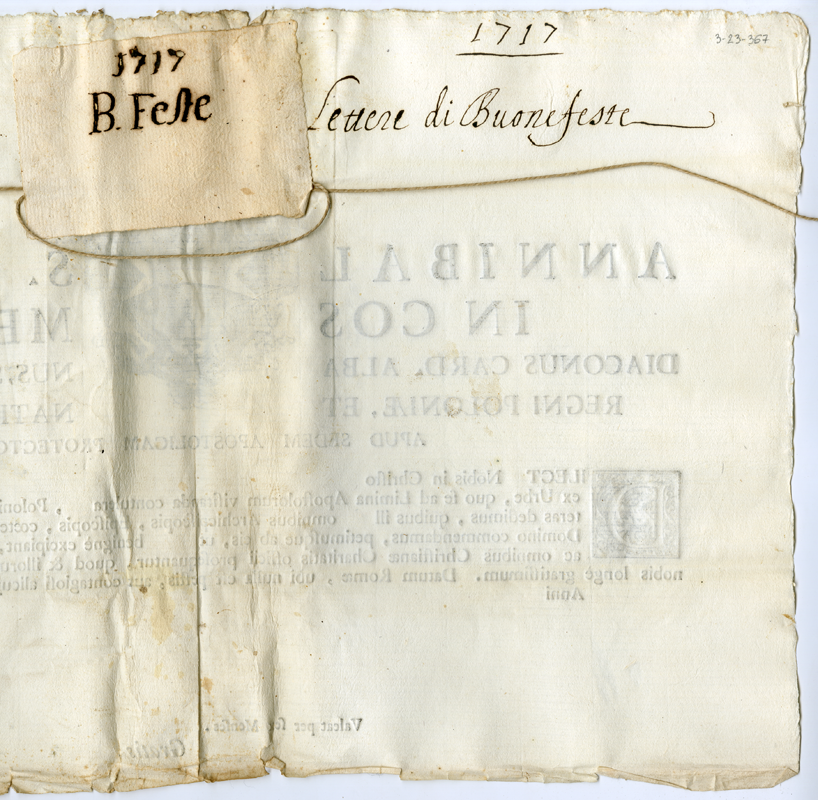 1717
B. Feste
1717
3-23-367
Lettere di Buonefeste
ANNIBAL S.
IN COS ME
DIACONUS CARD. ALBA NUS,
REGNI POLONIÆ, ET,
APUD SEDEM APOSTOLICAM PROTECTO
ILECT Nobis in Christo
ex Urbe, quo se ad Limina Apostolorum visitanda contulera , Poloni
teras dedimus, quibus ill omnibus Archiepiscopis, Episcopis,
Domino commendamus, petimusq; ab eis, benignè excipiant,
ac omnibus Christianæ Charitatis officii prosequantur, quod &
nobis longè gratissimum. Datum Romæ, ubi nulla est pestis, aut contagiosi
Anni
Valeat per sex Menses.
Gratis